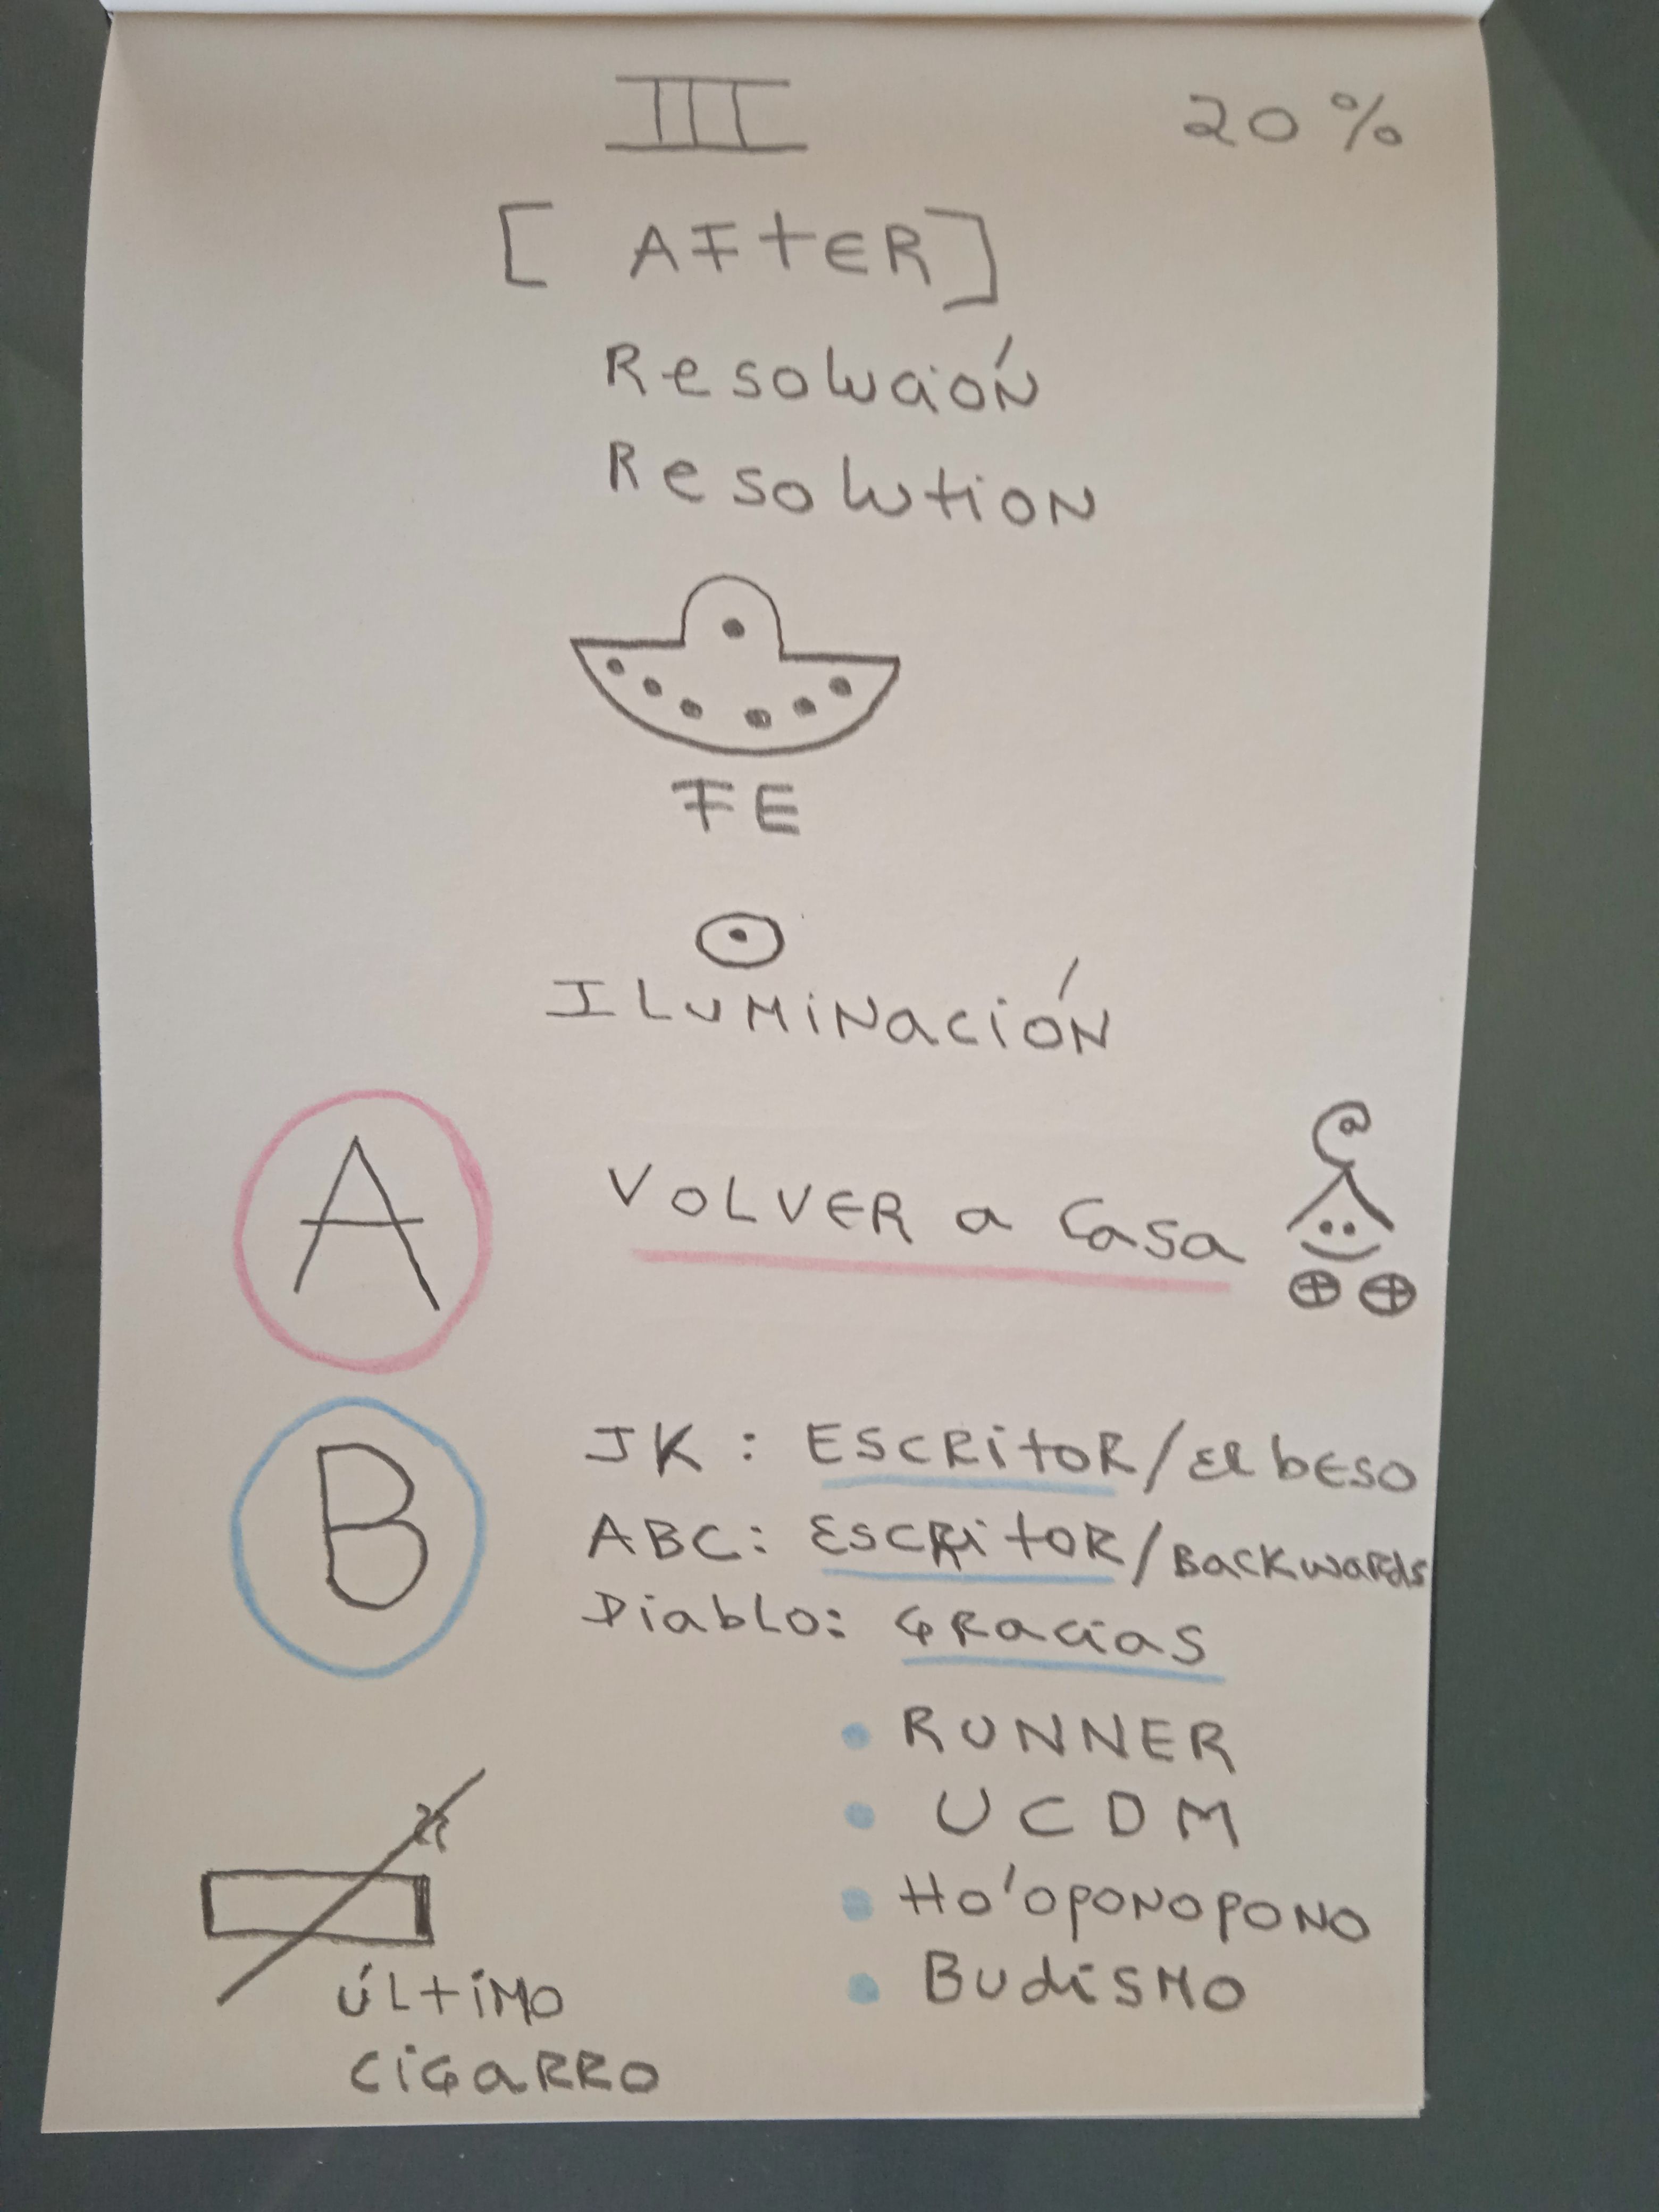 III 20%
[AFTER]
Resolución
Resolution
FE
ILUMiNación
A VOLVER a Casa
B JK: ESCRitoR/El bESO
ABC: ESCRitoR/Backwards
Diablo: GRacias
RUNNER
UCDM
Ho'oponopono
BudiSMO
ÚLtiMO
CiGaRRO